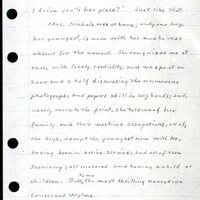 I drive you to her place?" Just like that.
Mrs. Nichols was at home; only one boy,
her youngest, is now with her and he was
absent for the moment. She recognized me at
once, with lovely cordiality, and we spent an
hour and a half discussing the numerous
photographs and papers still in my hands; and,
vastly more to the point, she told me of her
family and their wartime occupations, all of
the boys, except the youngest now with her,
having been in active service, and all of them
surviving; all married and having a child or
children. But, to me, the most thrilling narrative
concerned Wylma.